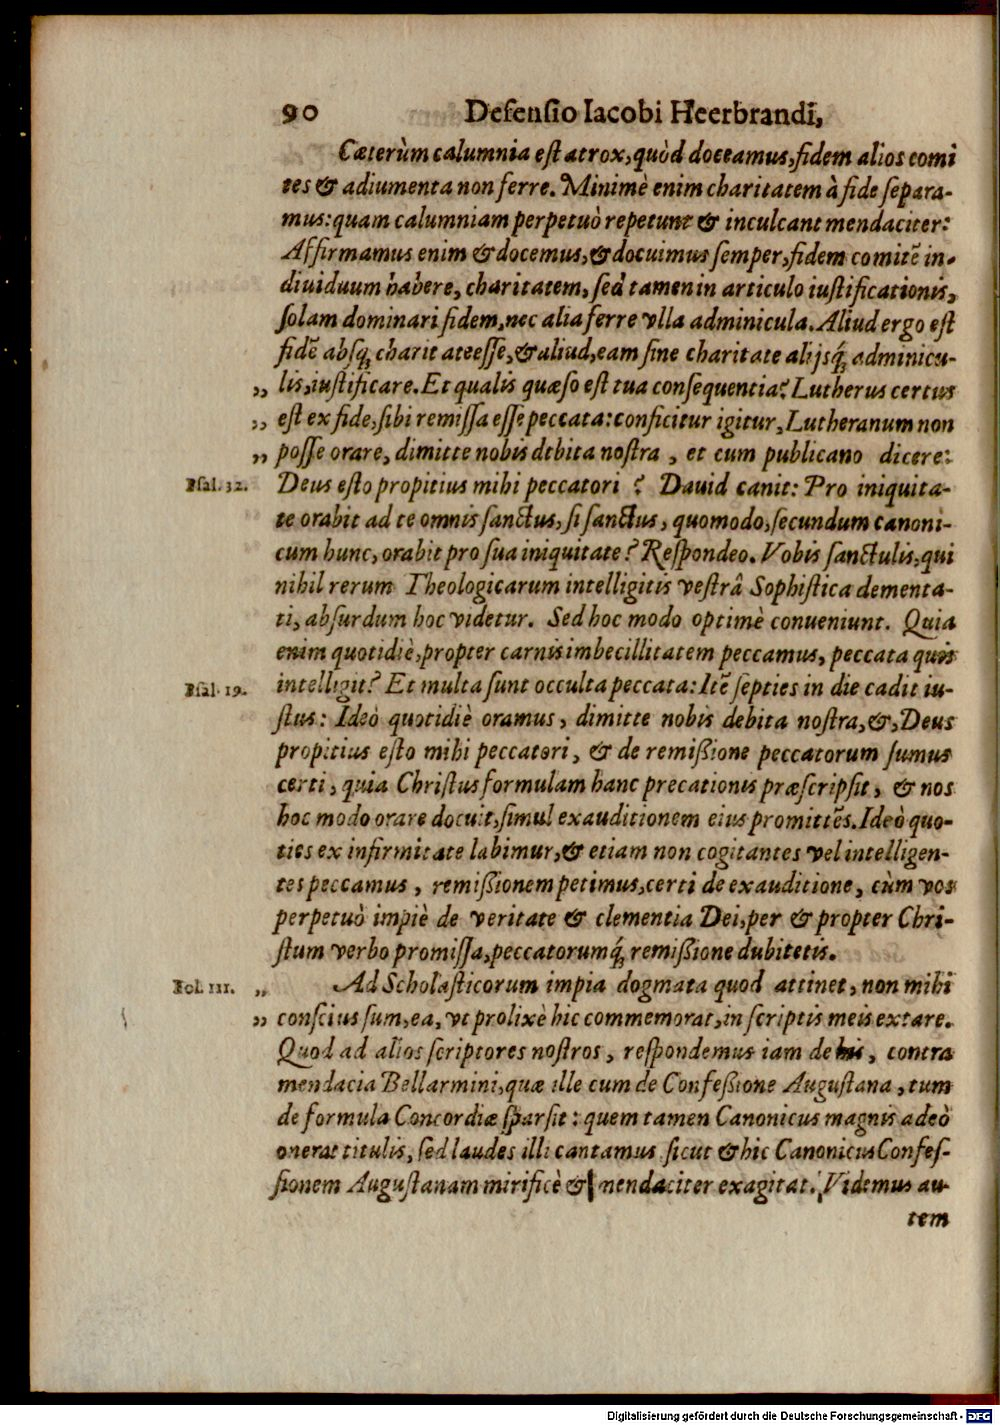 90 Defensio Iacobi Heerbrandi,
Cæterùm calumnia est atrox, quòd doceamus, fidem alios comi
tes & adiumenta non ferre. Minimè enim charitatem à fide separa-
mus: quam calumniam perpetuò repetunt & inculcant mendaciter:
Affirmamus enim & docemus, & docuimus semper, fidem comitẽ in-
diuiduum habere, charitatem, sed tamen in articulo iustificationis,
solam dominari fidem, nec alia ferre vlla adminicula. Aliud ergo est
fidẽ absq; charitate esse, & aliud, eam sine charitate alijsq́; adminicu-
„ lis, iustificare. Et qualis quæso est tua consequentia? Lutherus certus
„ est ex fide, sibi remissa esse peccata: conficitur igitur, Lutheranum non
„ posse orare, dimitte nobis debita nostra, et cum publicano dicere:
Psal. 32. Deus esto propitius mihi peccatori? Dauid canit: Pro iniquita-
te orabit ad te omnis sanctus, si sanctus, quomodo, secundum canoni-
cum hunc, orabit pro sua iniquitate? Respondeo. Vobis sanctulis, qui
nihil rerum Theologicarum intelligitis vestrâ Sophistica dementa-
ti, absurdum hoc videtur. Sed hoc modo optimè conueniunt. Quia
enim quotidiè, propter carnis imbecillitatem peccamus, peccata quis
Psal. 19. intelligit? Et multa sunt occulta peccata: Itẽ septies in die cadit iu-
stus: Ideò quotidiè oramus, dimitte nobis debita nostra, &, Deus
propitius esto mihi peccatori, & de remißione peccatorum sumus
certi, quia Christus formulam hanc precationis præscripsit, & nos
hoc modo orare docuit, simul exauditionem eius promittẽs. Ideò quo-
ties ex infirmitate labimur, & etiam non cogitantes vel intelligen-
tes peccamus, remißionem petimus, certi de exauditione, cùm vos
perpetuò impiè de veritate & clementia Dei, per & propter Chri-
stum verbo promissa, peccatorumq́; remißione dubitetis.
Fol. 111. „ Ad Scholasticorum impia dogmata quod attinet, non mihi
„ conscius sum, ea, vt prolixè hic commemorat, in scriptis meis extare.
Quod ad alios scriptores nostros, respondemus iam de his, contra
mendacia Bellarmini, quæ ille cum de Confeßione Augustana, tum
de formula Concordiæ sparsit: quem tamen Canonicus magnis adeò
onerat titulis, sed laudes illi cantamus sicut & hic Canonicus Confes-
sionem Augustanam mirificè & mendaciter exagitat. Videmus au-
tem
Digitalisierung gefördert durch die Deutsche Forschungsgemeinschaft - DFG